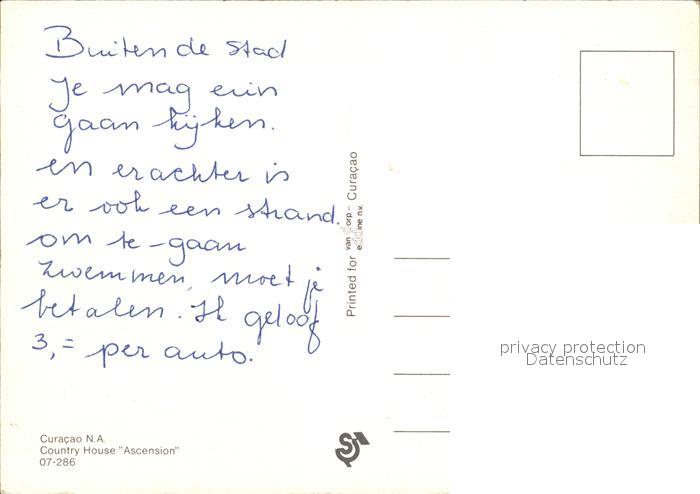 Buiten de stad
Je mag erin
gaan kijken.
en erachter is
er ook een strand.
om te-gaan
zwemmen, moet je
betalen. Ik geloof
3,= per auto.
Printed for van Dorp - eddine n.v. Curaçao
privacy protection
Datenschutz
Curaçao N.A.
Country House "Ascension"
07-286